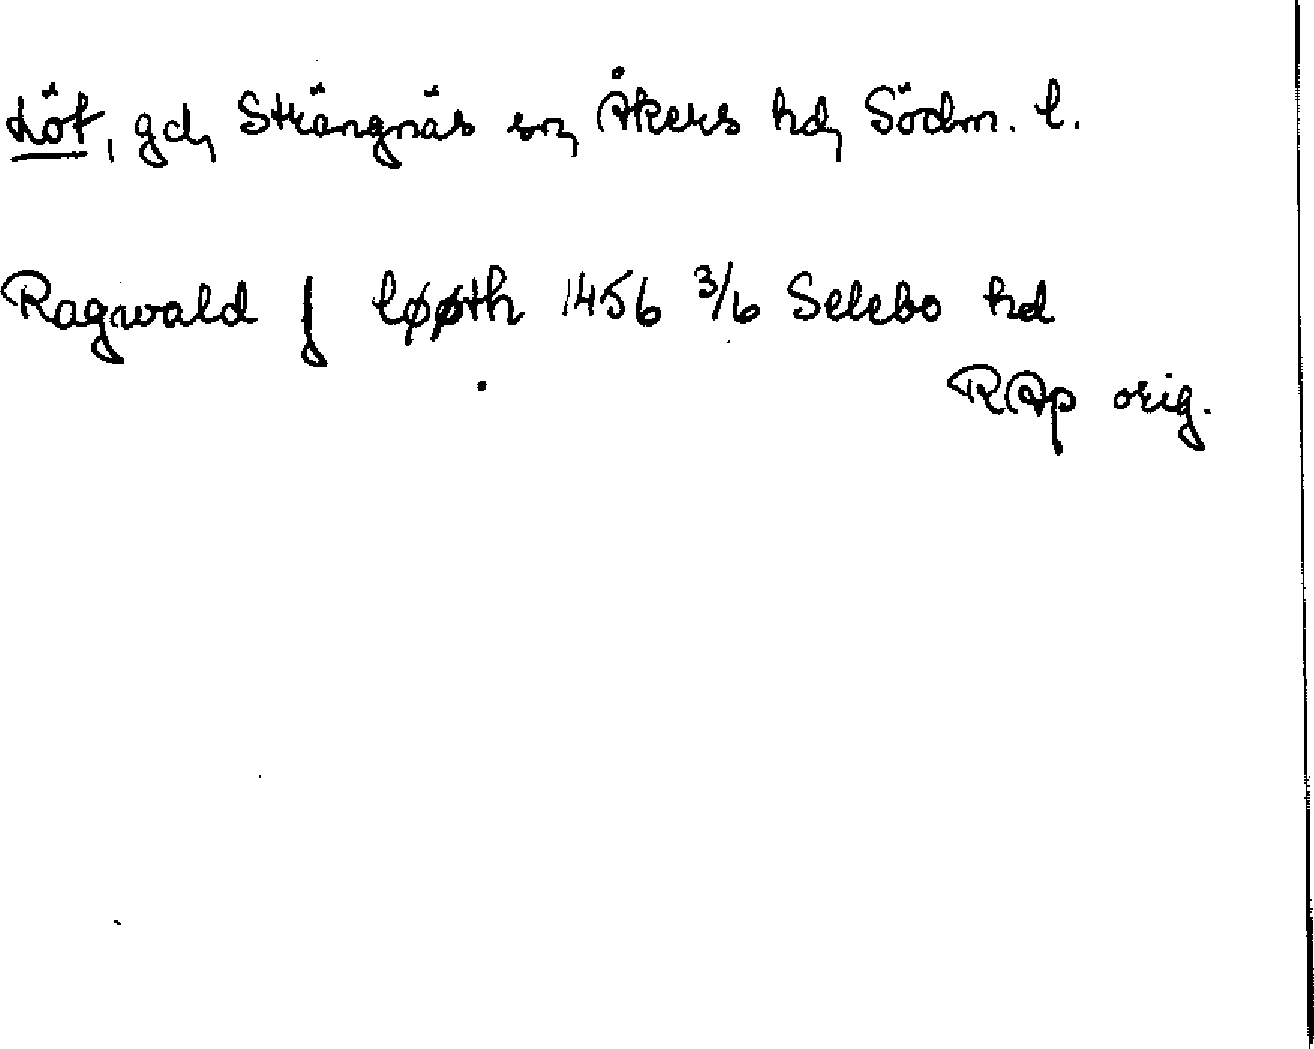 Löt, gd, Strängnäs sn, Åkers hd, Södm. l.
Ragwald j løøth 1456 3/6 Selebo hd
RAp orig.